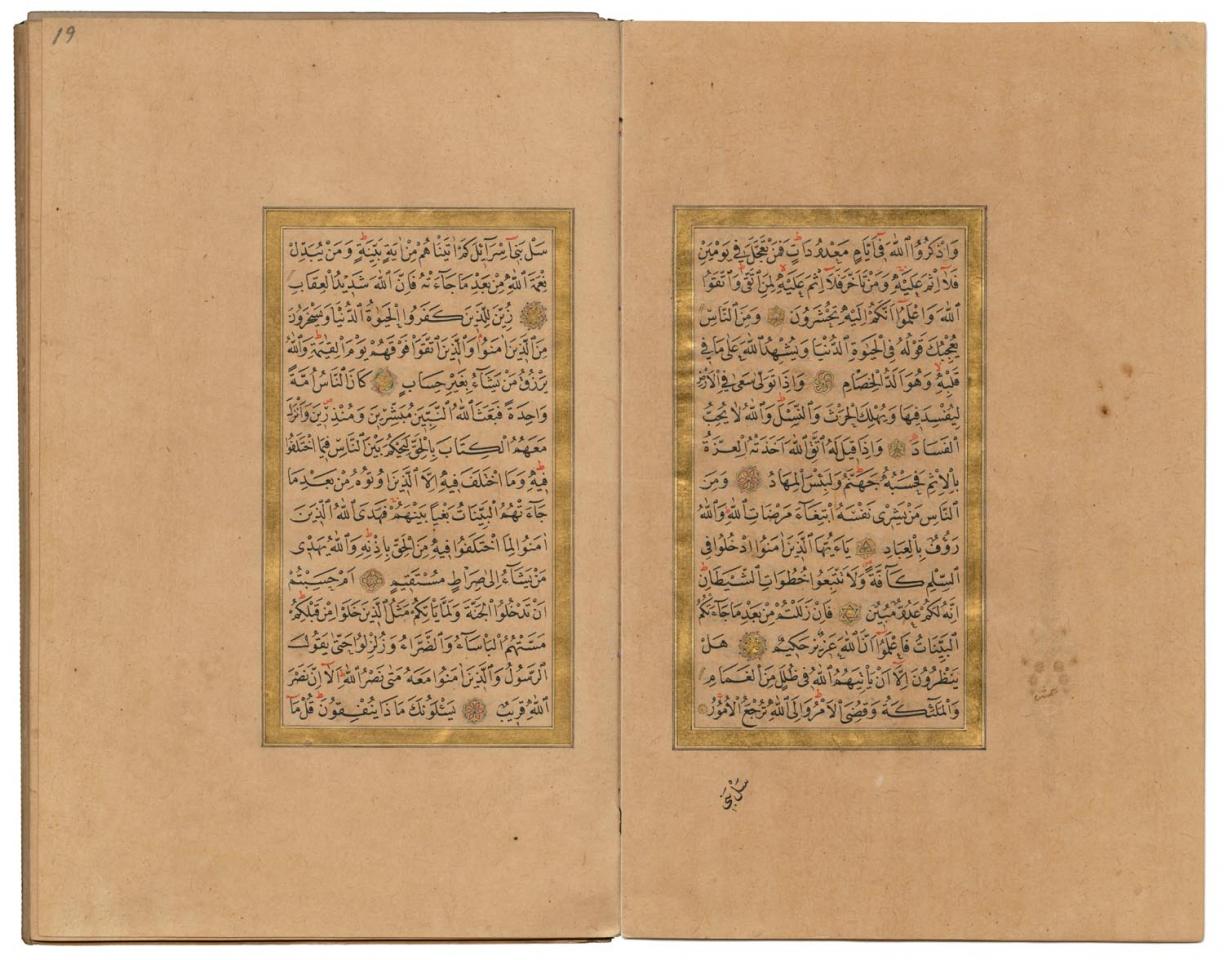 وَاذْكُرُوا اللّٰهَ فٖى اَيَّامٍ مَعْدُودَاتٍ فَمَنْ تَعَجَّلَ فٖى يَوْمَيْنِ
فَلَا اِثْمَ عَلَيْهِ وَمَنْ تَاَخَّرَ فَلَا اِثْمَ عَلَيْهِ لِمَنِ اتَّقٰى وَاتَّقُوا
اللّٰهَ وَاعْلَمُوا اَنَّكُمْ اِلَيْهِ تُحْشَرُونَ وَمِنَ النَّاسِ
يُعْجِبُكَ قَوْلُهُ فِى الْحَيٰوةِ الدُّنْيَا وَيُشْهِدُ اللّٰهَ عَلٰى مَا فٖى
قَلْبِهٖ وَهُوَ اَلَدُّ الْخِصَامِ وَاِذَا تَوَلّٰى سَعٰى فِى الْاَرْضِ
لِيُفْسِدَ فٖيهَا وَيُهْلِكَ الْحَرْثَ وَالنَّسْلَ وَاللّٰهُ لَا يُحِبُّ
الْفَسَادَ وَاِذَا قٖيلَ لَهُ اتَّقِ اللّٰهَ اَخَذَتْهُ الْعِزَّةُ
بِالْاِثْمِ فَحَسْبُهُ جَهَنَّمُ وَلَبِئْسَ الْمِهَادُ وَمِنَ
النَّاسِ مَنْ يَشْرٖى نَفْسَهُ ابْتِغَاءَ مَرْضَاتِ اللّٰهِ وَاللّٰهُ
رَؤُفٌ بِالْعِبَادِ يَاءَيُّهَا الَّذٖينَ اٰمَنُوا ادْخُلُوا فِى
السِّلْمِ كَافَّةً وَلَا تَتَّبِعُوا خُطُوَاتِ الشَّيْطَانِ
اِنَّهُ لَكُمْ عَدُوٌّ مُبٖينٌ فَاِنْ زَلَلْتُمْ مِنْ بَعْدِ مَا جَاءَتْكُمُ
الْبَيِّنَاتُ فَاعْلَمُوا اَنَّ اللّٰهَ عَزٖيزٌ حَكٖيمٌ هَلْ
يَنْظُرُونَ اِلَّا اَنْ يَاْتِيَهُمُ اللّٰهُ فٖى ظُلَلٍ مِنَ الْغَمَامِ
وَالْمَلٰئِكَةُ وَقُضِىَ الْاَمْرُ وَاِلَى اللّٰهِ تُرْجَعُ الْاُمُورُ
سَلْ بَنٖى
19
سَلْ بَنٖى اِسْرَائٖلَ كَمْ اٰتَيْنَاهُمْ مِنْ اٰيَةٍ بَيِّنَةٍ وَمَنْ يُبَدِّلْ
نِعْمَةَ اللّٰهِ مِنْ بَعْدِ مَا جَاءَتْهُ فَاِنَّ اللّٰهَ شَدٖيدُ الْعِقَابِ
زُيِّنَ لِلَّذٖينَ كَفَرُوا الْحَيٰوةُ الدُّنْيَا وَيَسْخَرُونَ
مِنَ الَّذٖينَ اٰمَنُوا وَالَّذٖينَ اتَّقَوْا فَوْقَهُمْ يَوْمَ الْقِيٰمَةِ وَاللّٰهُ
يَرْزُقُ مَنْ يَشَاءُ بِغَيْرِ حِسَابٍ كَانَ النَّاسُ اُمَّةً
وَاحِدَةً فَبَعَثَ اللّٰهُ النَّبِيّٖنَ مُبَشِّرٖينَ وَمُنْذِرٖينَ وَاَنْزَلَ
مَعَهُمُ الْكِتَابَ بِالْحَقِّ لِيَحْكُمَ بَيْنَ النَّاسِ فٖيمَا اخْتَلَفُوا
فٖيهِ وَمَا اخْتَلَفَ فٖيهِ اِلَّا الَّذٖينَ اُوتُوهُ مِنْ بَعْدِ مَا
جَاءَتْهُمُ الْبَيِّنَاتُ بَغْيًا بَيْنَهُمْ فَهَدَى اللّٰهُ الَّذٖينَ
اٰمَنُوا لِمَا اخْتَلَفُوا فٖيهِ مِنَ الْحَقِّ بِاِذْنِهٖ وَاللّٰهُ يَهْدٖى
مَنْ يَشَاءُ اِلٰى صِرَاطٍ مُسْتَقٖيمٍ اَمْ حَسِبْتُمْ
اَنْ تَدْخُلُوا الْجَنَّةَ وَلَمَّا يَاْتِكُمْ مَثَلُ الَّذٖينَ خَلَوْا مِنْ قَبْلِكُمْ
مَسَّتْهُمُ الْبَاْسَاءُ وَالضَّرَّاءُ وَزُلْزِلُوا حَتّٰى يَقُولَ
الرَّسُولُ وَالَّذٖينَ اٰمَنُوا مَعَهُ مَتٰى نَصْرُ اللّٰهِ اَلَا اِنَّ نَصْرَ
اللّٰهِ قَرٖيبٌ يَسْئَلُونَكَ مَاذَا يُنْفِقُونَ قُلْ مَا